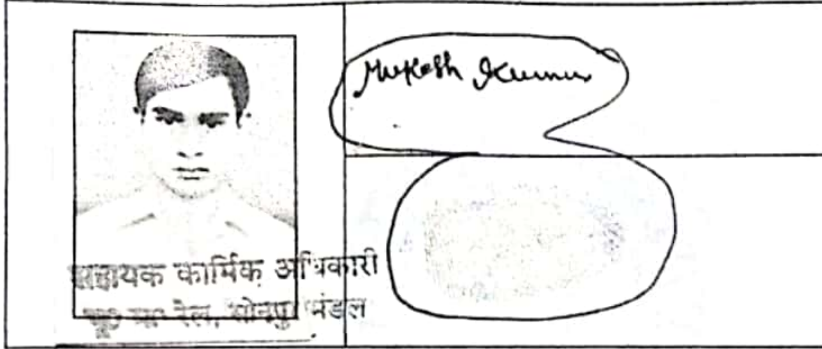 Mukesh Kumar
सहायक कार्मिक अधिकारी
पू० म० रेल, सोनपुर मंडल